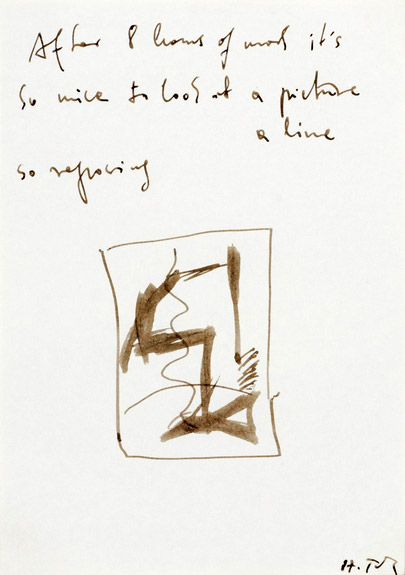 After 8 hours of work it's
so nice to look at a picture
a line
so reposing